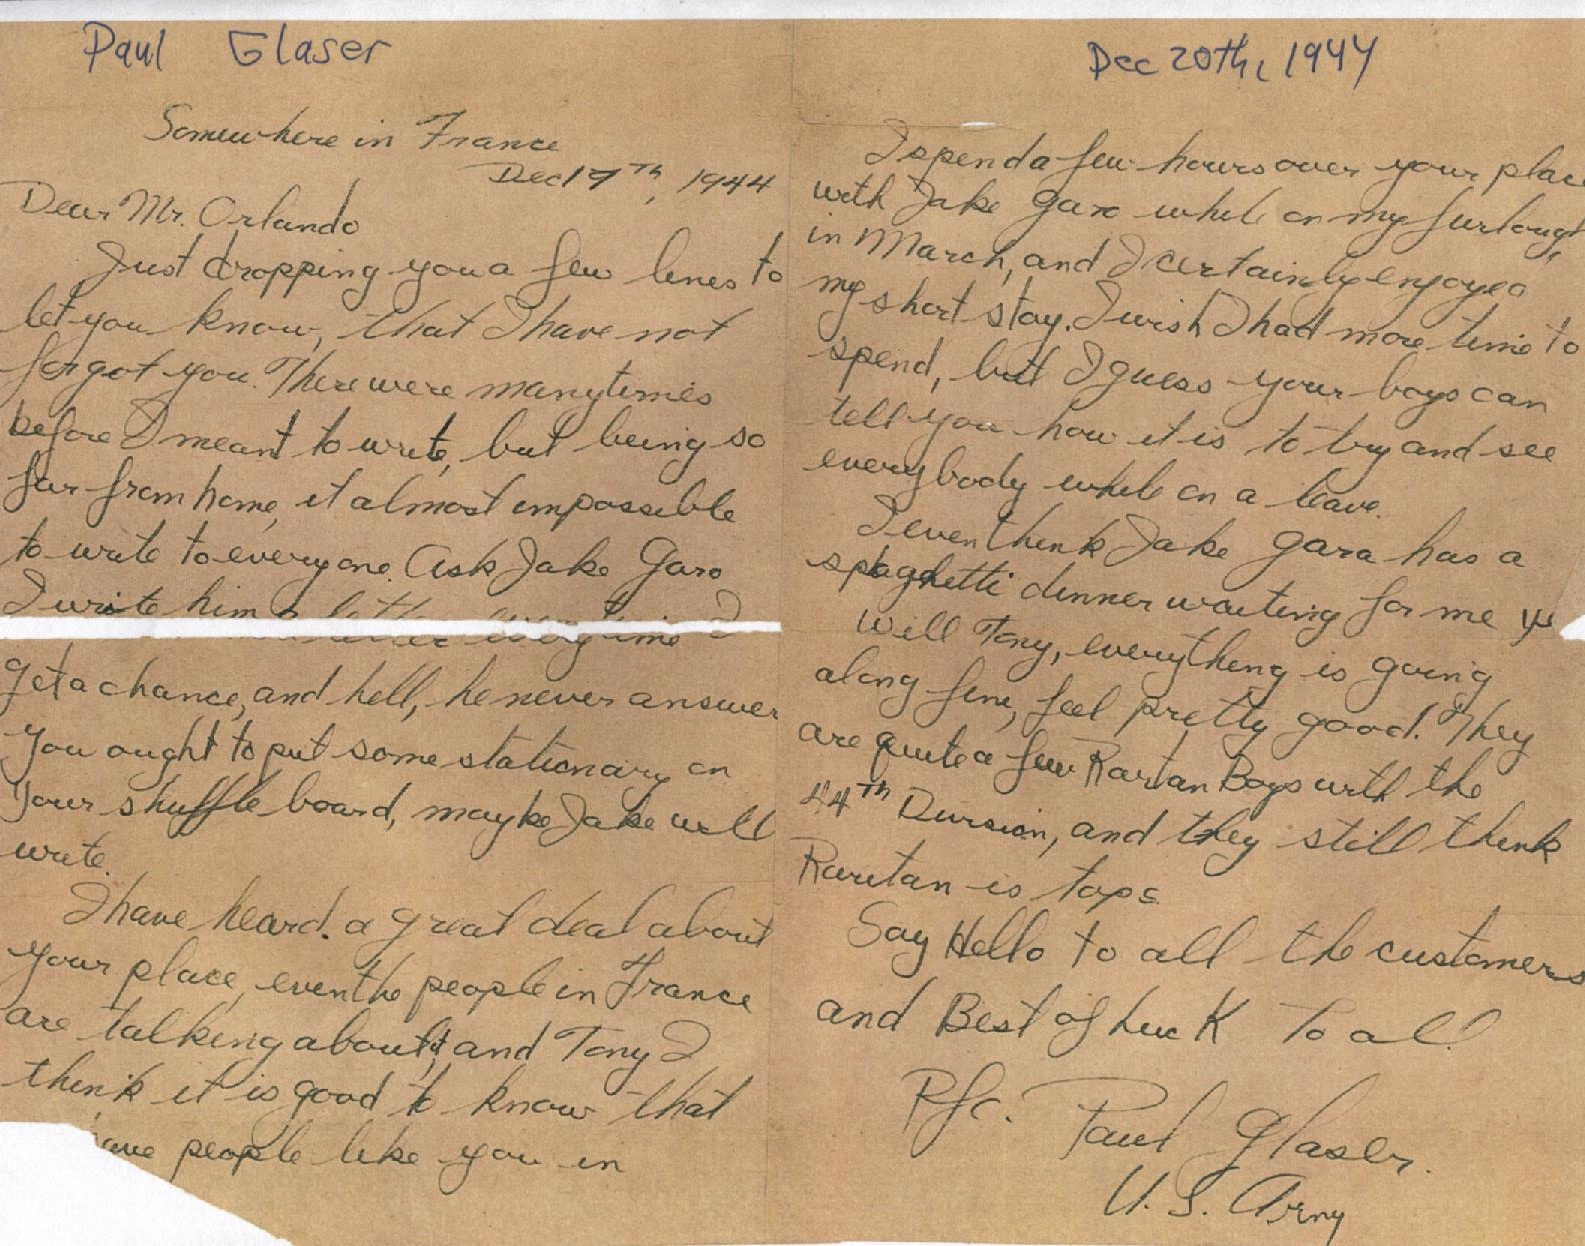 Paul Glaser
Somewhere in France
Dec 17th, 1944
Dear Mr. Orlando
Just dropping you a few lines to
let you know, that I have not
forgot you. There were many times
before I meant to write, but being so
far from home, it almost impossible
to write to everyone. Ask Jake Gara
I write him a letter everytime I
get a chance, and hell, he never answer
You ought to put some stationary on
your shuffle board, maybe Jake will
write.
I have heard. a great deal about
your place, even the people in France
are talking about it, and Tony I
think it is good to know that
people like you in
Dec 20th, 1944
I spend a few hours over your place
with Jake Gara while on my furlough,
in March, and I certainly enjoyed
my short stay. I wish I had more time to
spend, but I guess your boys can
tell you how it is to try and see
everybody while on a leave.
I even think Jake Gara has a
spaghetti dinner waiting for me
Will Tony, everything is going
along fine, feel pretty good. They
are quite a few Raritan Boys with the
44th Division, and they still think
Raritan is tops
Say Hello to all the customers
and Best of Luck to all
Pfc. Paul Glaser.
U. S. Army